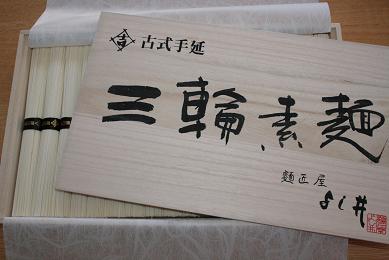 古式手延
三輪素麺
麺匠屋
よし井